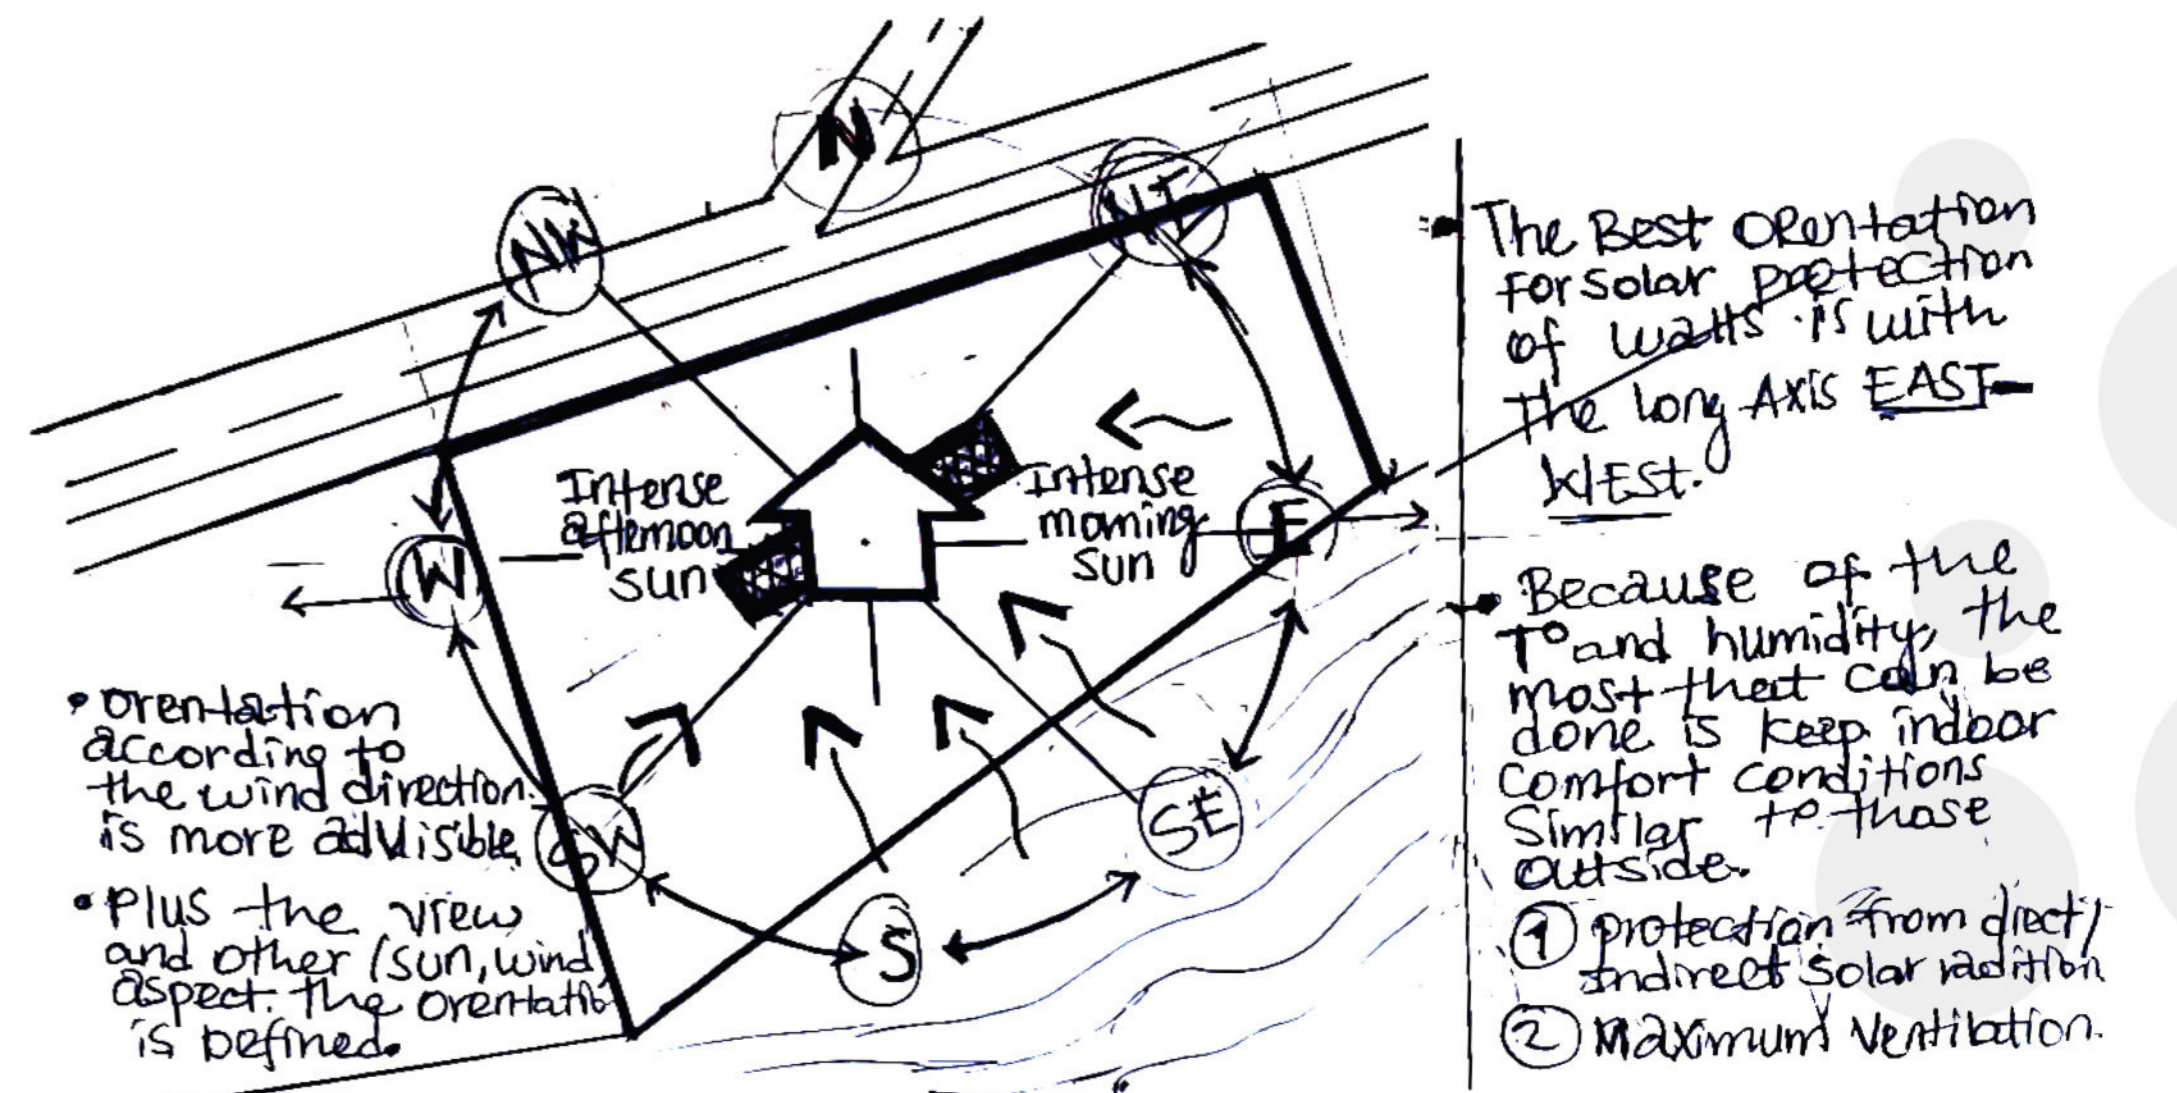 N
NE
NW
Intense
afternoon
sun
Intense
morning
sun
E
W
SW
S
SE
• orentation
according to
the wind direction.
is more advisible
• Plus the view
and other (sun, wind)
aspect. the orentatio
is Defined.
The Best ORentation
For solar protection
of walls is with
The long Axis EAST-
WEst.
Because of the
T° and humidity, the
most that can be
done is keep indoor
comfort conditions
similar to those
outside.
1 protection from direct/
indirect solar radition
2 Maximum ventilation.